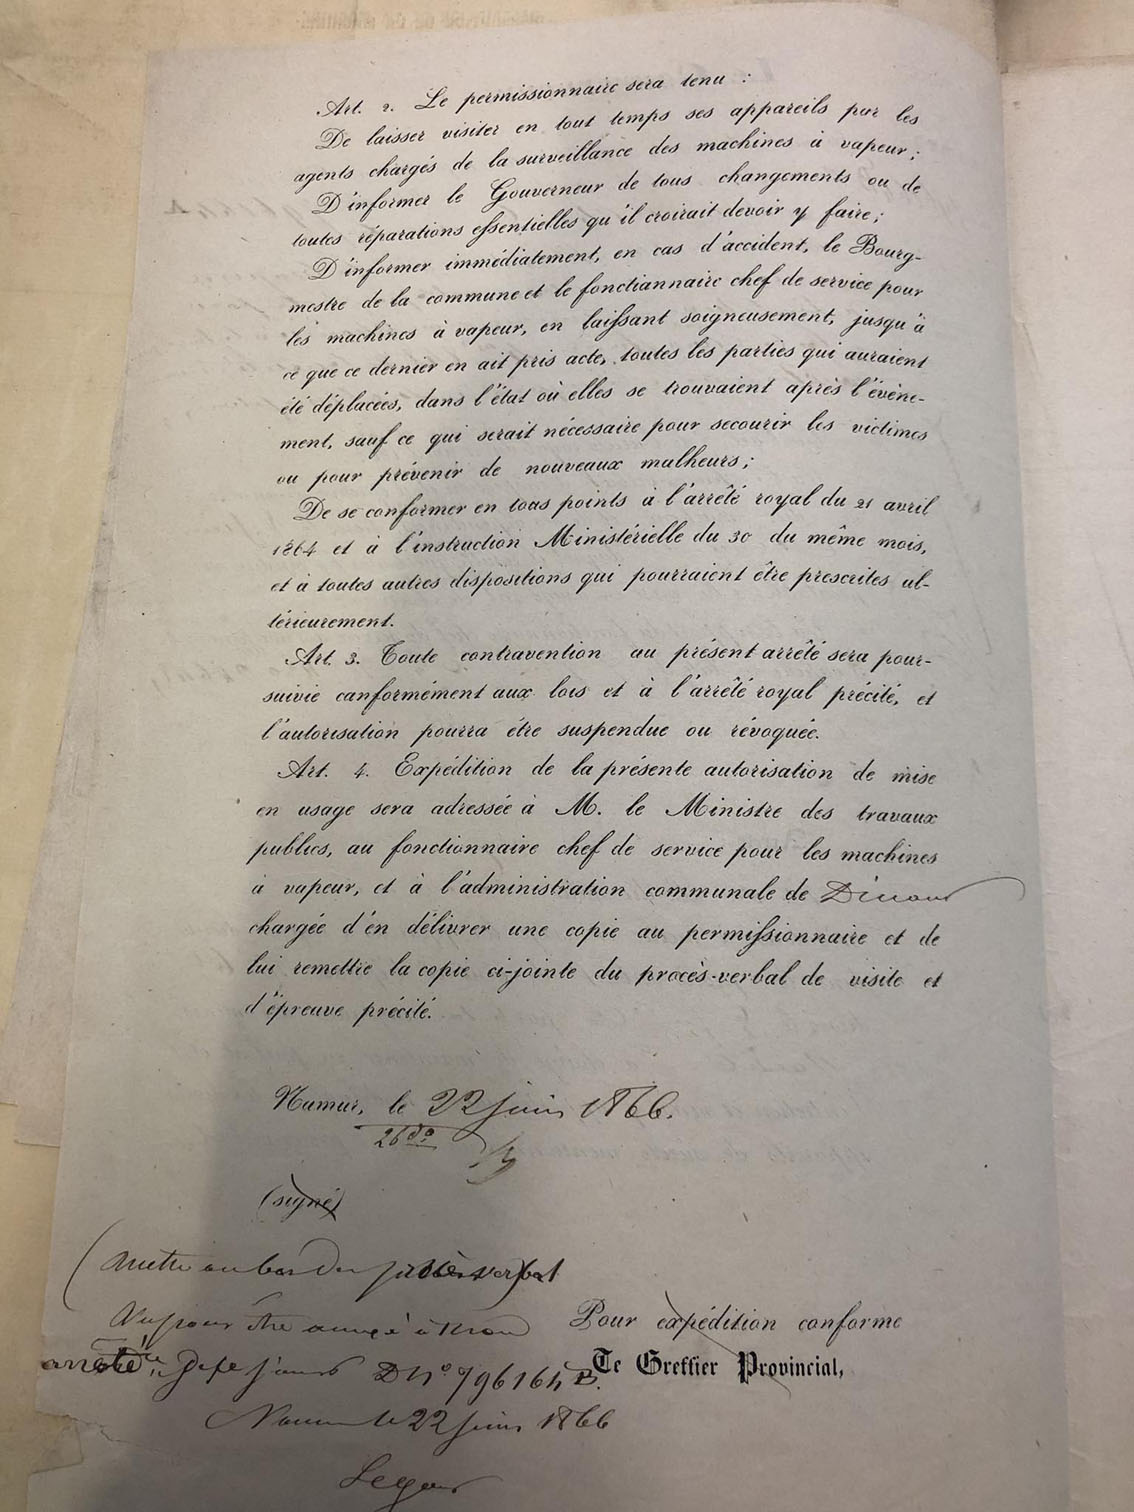 Art. 2. Le permissionnaire sera tenu :
De laisser visiter en tout temps ses appareils par les
agents chargés de la surveillance des machines à vapeur ;
D'informer le Gouverneur de tous changements ou de
toutes réparations essentielles qu'il croirait devoir y faire ;
D'informer immédiatement, en cas d'accident, le Bourg-
mestre de la commune et le fonctionnaire chef de service pour
les machines à vapeur, en laissant soigneusement, jusqu'à
ce que ce dernier en ait pris acte, toutes les parties qui auraient
été déplacées, dans l'état où elles se trouvaient après l'évène-
ment, sauf ce qui serait nécessaire pour secourir les victimes
ou pour prévenir de nouveaux malheurs ;
De se conformer en tous points à l'arrêté royal du 21 avril
1864 et à l'instruction Ministérielle du 30 du même mois,
et à toutes autres dispositions qui pourraient être prescrites ul-
térieurement.
Art. 3. Toute contravention au présent arrêté sera pour-
suivie conformément aux lois et à l'arrêté royal précité, et
l'autorisation pourra être suspendue ou révoquée.
Art. 4. Expédition de la présente autorisation de mise
en usage sera adressée à M. le Ministre des travaux
publics, au fonctionnaire chef de service pour les machines
à vapeur, et à l'administration communale de Dinant
chargée d'en délivrer une copie au permissionnaire et de
lui remettre la copie ci-jointe du procès-verbal de visite et
d'épreuve précité.
Namur, le 22 juin 1866.
26 do
(signé)
(mettre au bas du procès verbal
Vu pour être annexé à
Pour expédition conforme
arrêté de ce jour D N° 796164 B.
Le Greffier Provincial,
Namur le 22 juin 1866